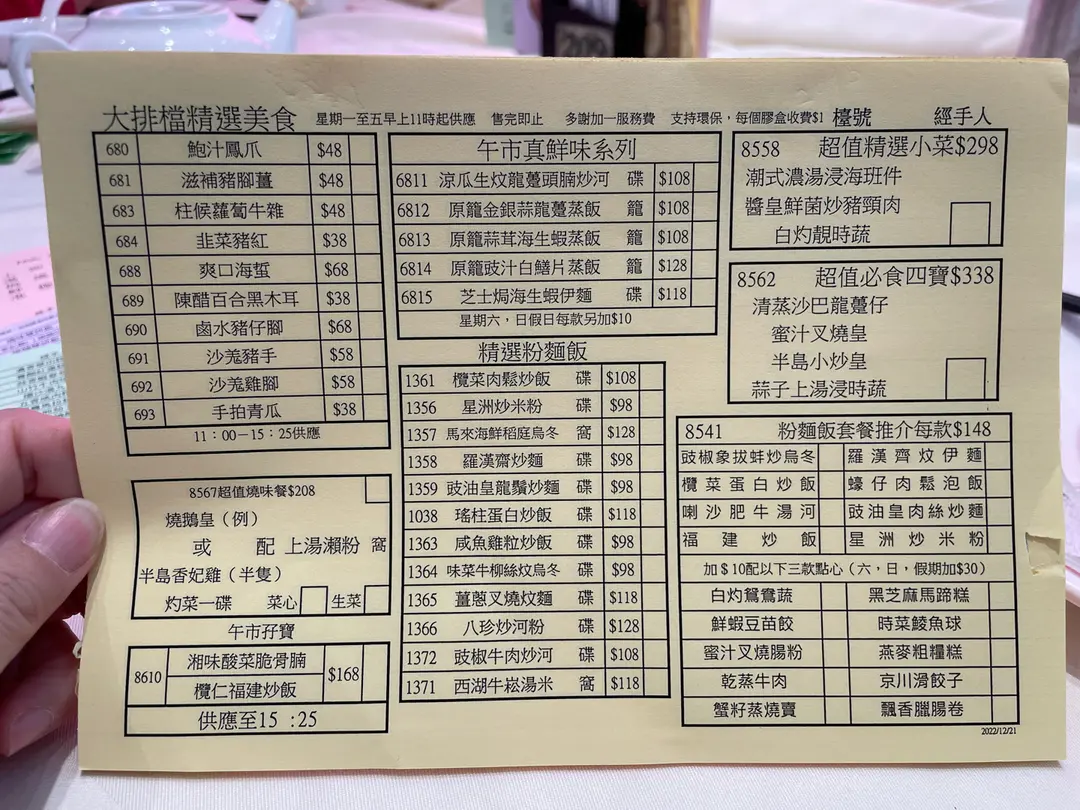 大排檔精選美食 星期一至五早上11時起供應 售完即止 多謝加一服務費 支持環保，每個膠盒收費$1 檯號 經手人
680 鮑汁鳳爪 $48
681 滋補豬腳薑 $48
683 柱候蘿蔔牛雜 $48
684 韭菜豬紅 $38
688 爽口海蜇 $68
689 陳醋百合黑木耳 $38
690 鹵水豬仔腳 $68
691 沙羗豬手 $58
692 沙羗雞腳 $58
693 手拍青瓜 $38
11：00－15：25供應
8567超值燒味餐$208
燒鵝皇（例）
或 配 上湯瀨粉 窩
半島香妃雞（半隻）
灼菜一碟 菜心 生菜
午市孖寶
8610 湘味酸菜脆骨腩 $168
欖仁福建炒飯
供應至15：25
午市真鮮味系列
6811 涼瓜生炆龍躉頭腩炒河 碟 $108
6812 原籠金銀蒜龍躉蒸飯 籠 $108
6813 原籠蒜茸海生蝦蒸飯 籠 $108
6814 原籠豉汁白鱔片蒸飯 籠 $128
6815 芝士焗海生蝦伊麵 碟 $118
星期六，日假日每款另加$10
精選粉麵飯
1361 欖菜肉鬆炒飯 碟 $108
1356 星洲炒米粉 碟 $98
1357 馬來海鮮稻庭烏冬 窩 $128
1358 羅漢齋炒麵 碟 $98
1359 豉油皇龍鬚炒麵 碟 $98
1038 瑤柱蛋白炒飯 碟 $118
1363 咸魚雞粒炒飯 碟 $98
1364 味菜牛柳絲炆烏冬 碟 $98
1365 薑蔥叉燒炆麵 碟 $118
1366 八珍炒河粉 碟 $128
1372 豉椒牛肉炒河 碟 $108
1371 西湖牛崧湯米 窩 $118
8558 超值精選小菜$298
潮式濃湯浸海班件
醬皇鮮菌炒豬頸肉
白灼靚時蔬
8562 超值必食四寶$338
清蒸沙巴龍躉仔
蜜汁叉燒皇
半島小炒皇
蒜子上湯浸時蔬
8541 粉麵飯套餐推介每款$148
豉椒象拔蚌炒烏冬 羅漢齊炆伊麵
欖菜蛋白炒飯 蠔仔肉鬆泡飯
喇沙肥牛湯河 豉油皇肉絲炒麵
福建炒飯 星洲炒米粉
加＄10配以下三款點心（六，日，假期加$30）
白灼鴛鴦蔬 黑芝麻馬蹄糕
鮮蝦豆苗餃 時菜鯪魚球
蜜汁叉燒腸粉 燕麥粗糧糕
乾蒸牛肉 京川滑餃子
蟹籽蒸燒賣 飄香臘腸卷
2022/12/21